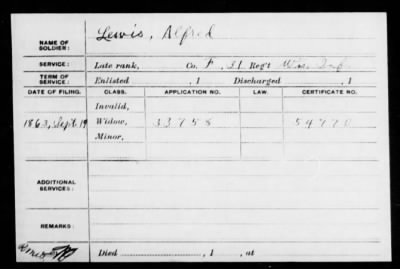 NAME OF SOLDIER: Lewis, Alfred
SERVICE: Late rank, Co. F, 31 Reg't Wis. Inf.
TERM OF SERVICE: Enlisted , 1 Discharged , 1
DATE OF FILING. CLASS. APPLICATION NO. LAW. CERTIFICATE NO.
Invalid,
1863, Sept. 19 Widow, 33758 54770
Minor,
ADDITIONAL SERVICES:
REMARKS:
Died , 1 , at